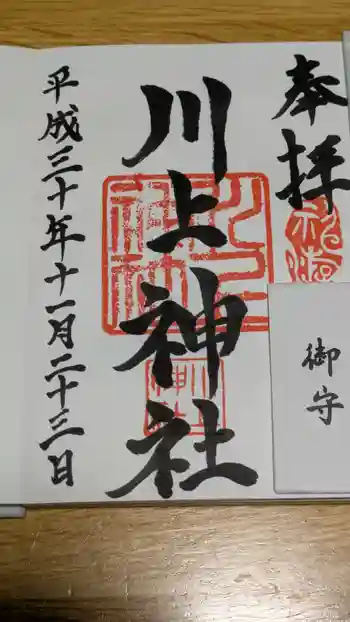 奉拝
川上神社
平成三十年十一月二十三日
御守
川上
神社